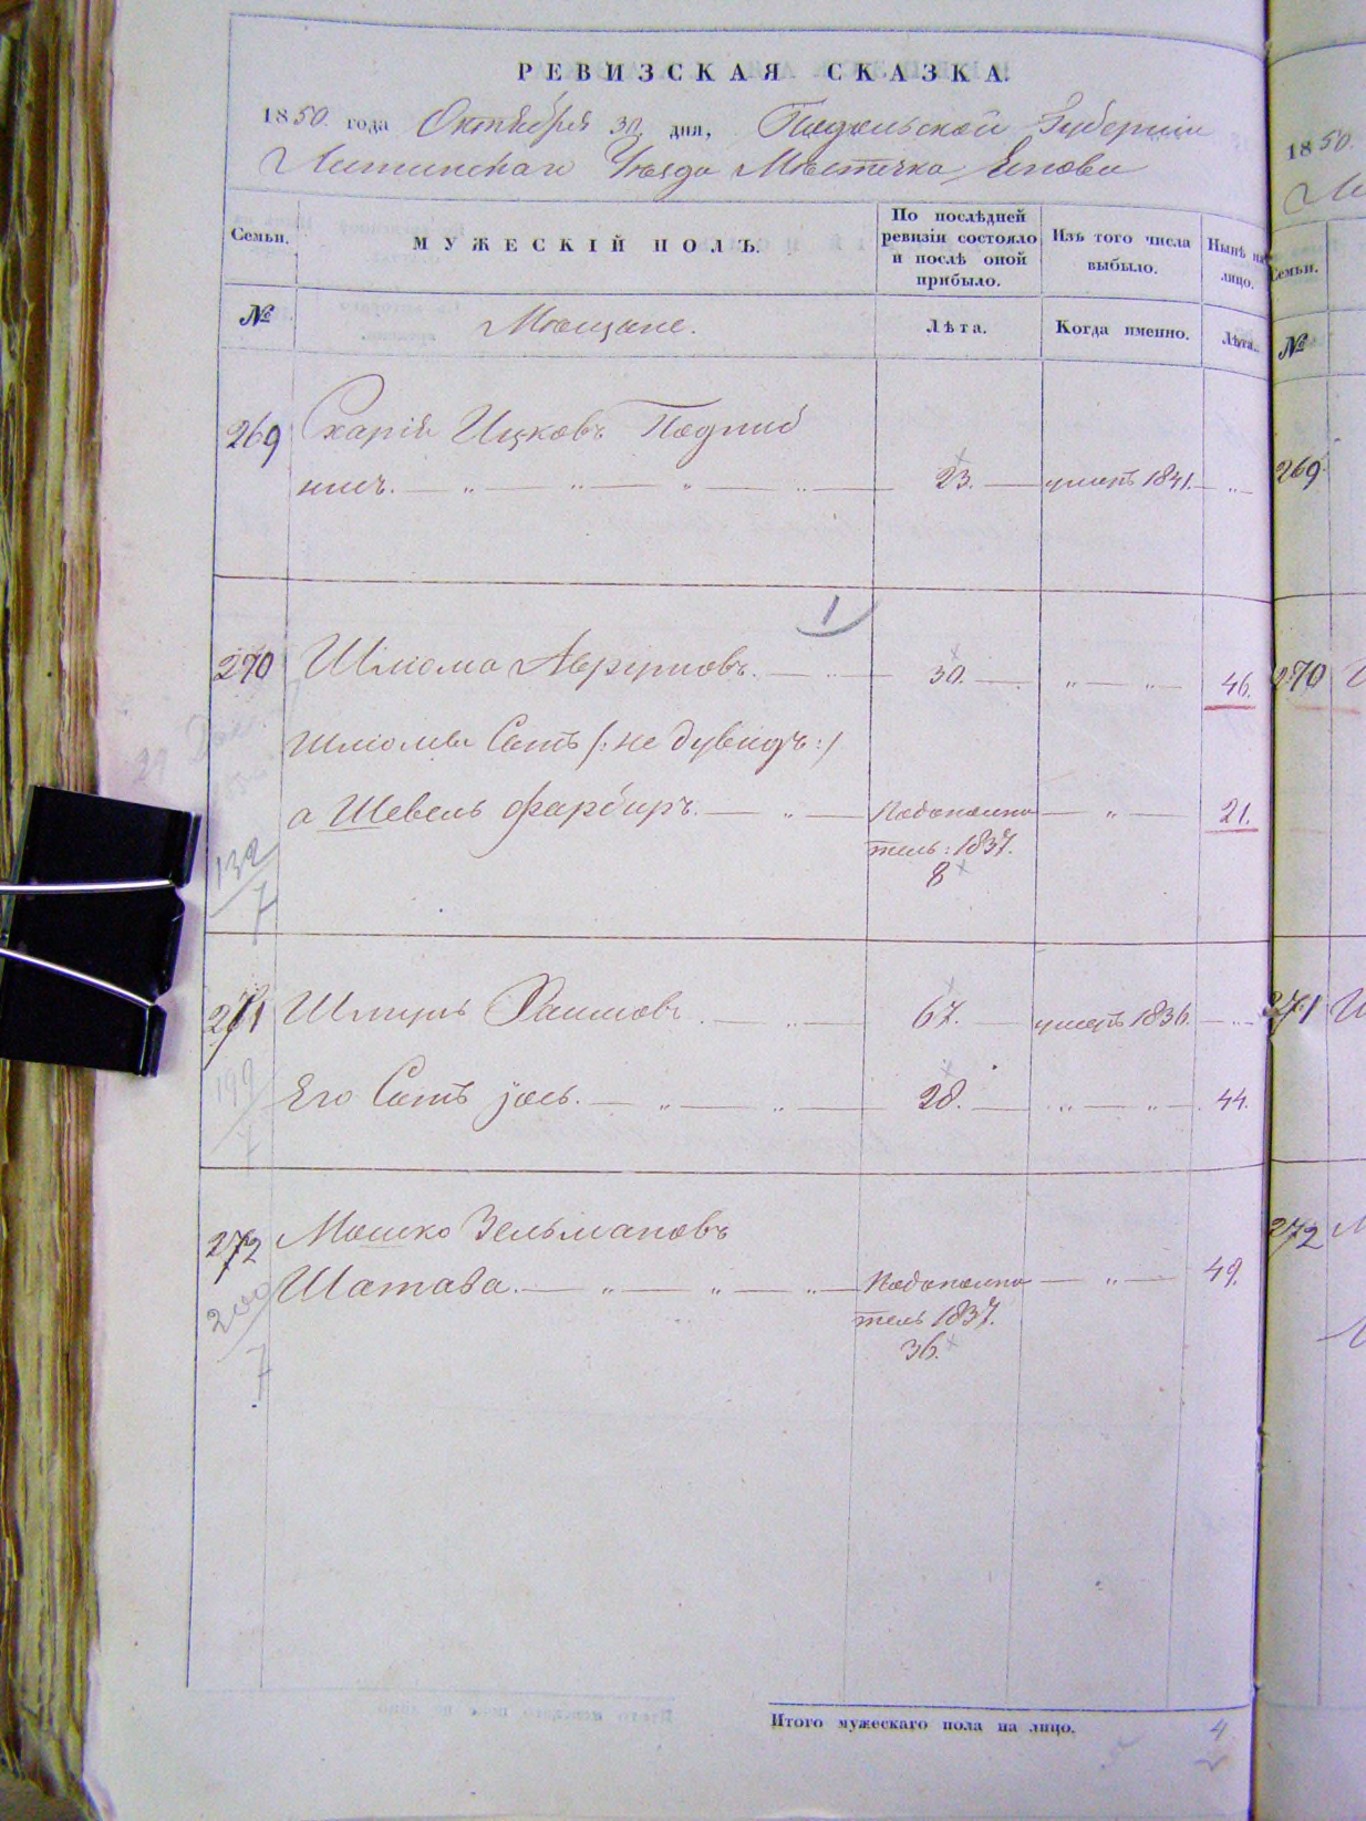 РЕВИЗСКАЯ СКАЗКА.
1850. года Октября 30. дня, Подольской Губернии
Литинскаго Уѣзда Мѣстечка Янова
Семьи.
МУЖЕСКІЙ ПОЛЪ.
По послѣдней ревизіи состояло и послѣ оной прибыло.
Изъ того числа выбыло.
Нынѣ на лицо.
№
Мѣщане.
Лѣта.
Когда именно.
Лѣта.
269 Схарій Ицковъ
никъ. — „ — „ — „ — „ — 23. — умеръ 1841. — „ —
1
270 Шліома Аврумовъ. — „ — 30. — „ — „ — 46.
Шліомы Сынъ /: не дувидъ :/
а Шевель фарбиръ. — „ — Подополни — „ — 21.
тель: 1837.
8
132
7
271 Шмуль Хаимовъ. — „ — 67. — умеръ 1836. — „ —
Его Сынъ Іось. — „ — „ — 28. — „ — „ — 44.
199
7
272 Мошко Зельмановъ
Шатава. — „ — „ — „ — Подополни — „ — 49.
тель 1837.
36.
200
7
Итого мужескаго пола на лицо. 4
1850.
Семьи.
№
269.
270
271
272